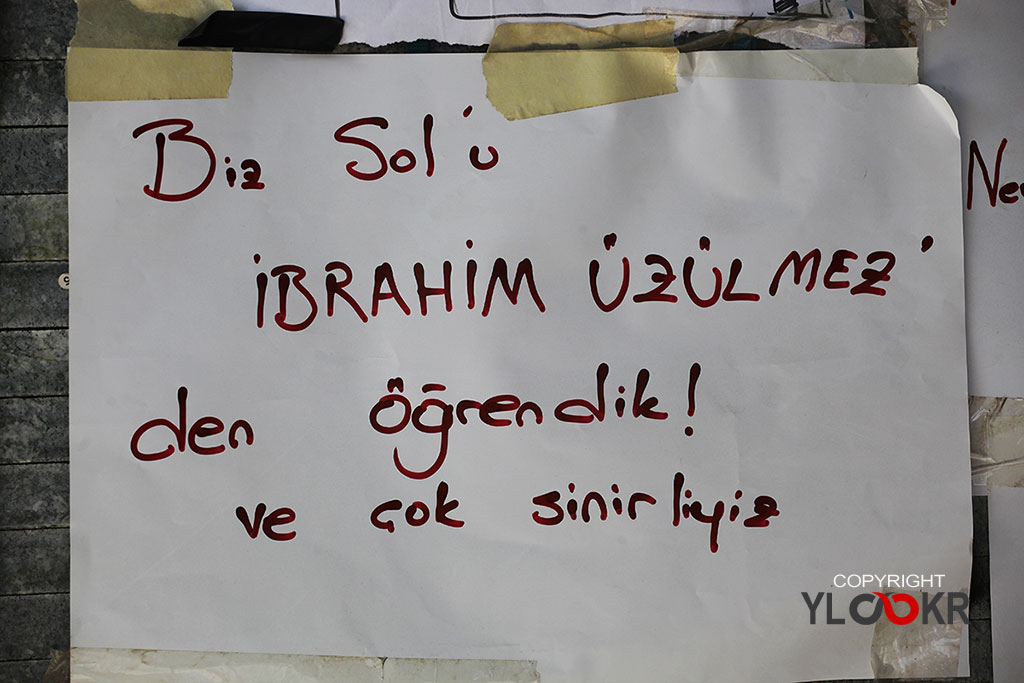 Biz Sol'u
İBRAHİM ÜZÜLMEZ'
den öğrendik!
ve çok sinirliyiz
COPYRIGHT
YLOOKR